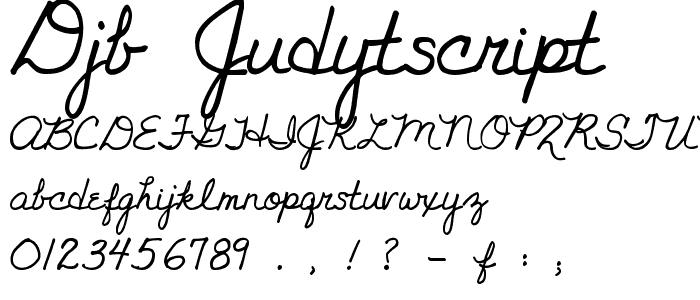 Djb Judytscript
ABCDEFGHIJKLMNOPQRSTU
abcdefghijklmnopqrstuvwxyz
0123456789 . , ! ? - f : ;